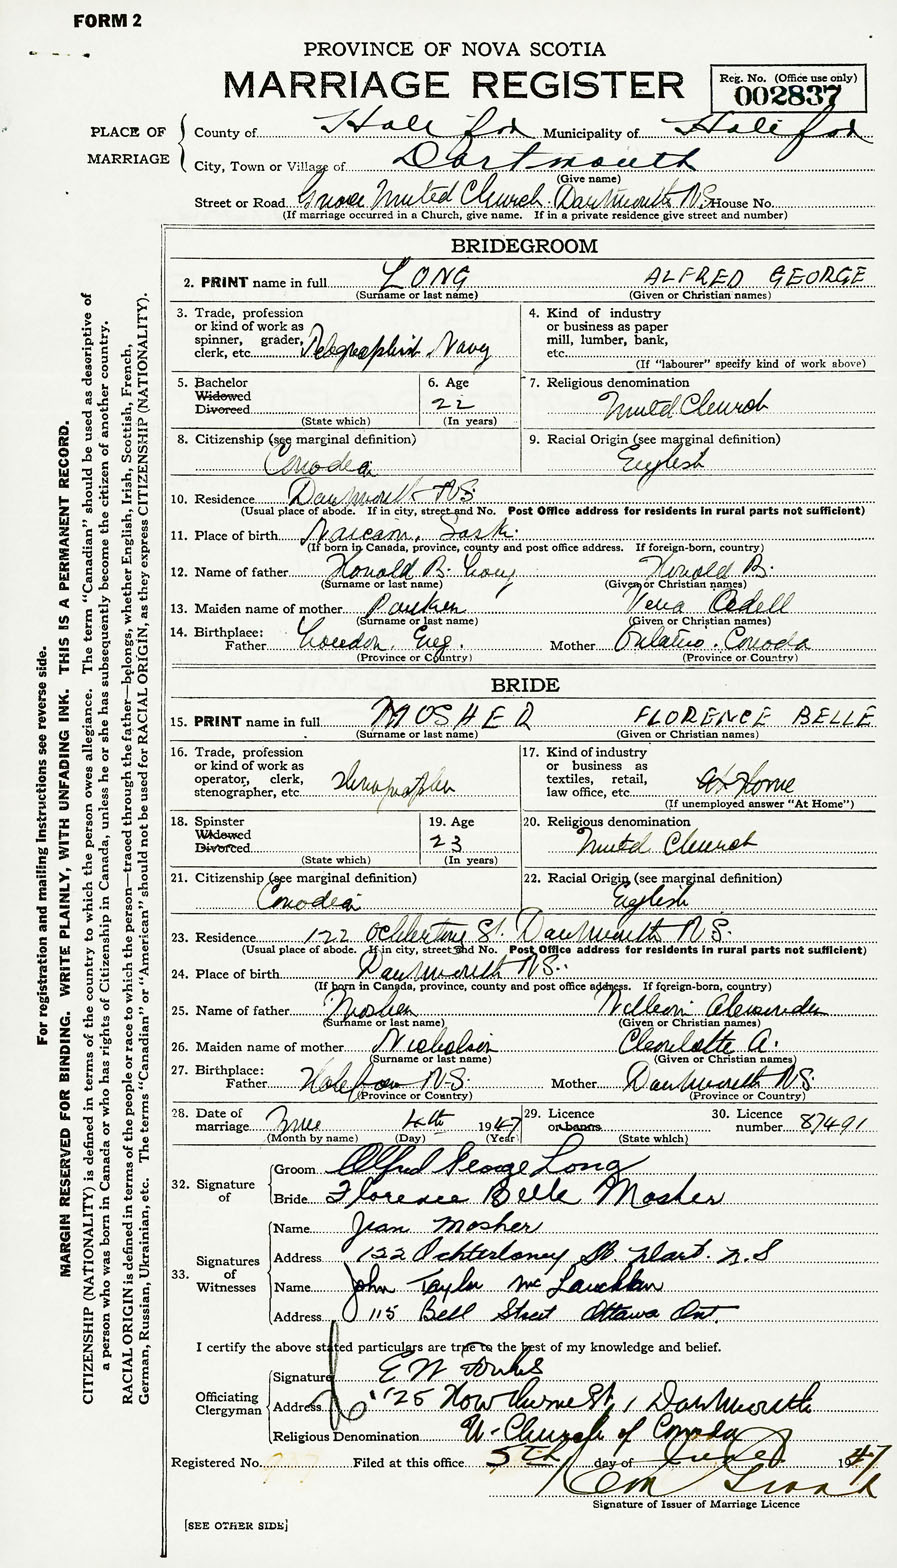 FORM 2
PROVINCE OF NOVA SCOTIA
MARRIAGE REGISTER
Reg. No. (Office use only)
002837
PLACE OF MARRIAGE
County of Halifax Municipality of Halifax
City, Town or Village of Dartmouth
(Give name)
Street or Road Grace United Church. Dartmouth N.S. House No.
(If marriage occurred in a Church, give name. If in a private residence give street and number)
BRIDEGROOM
2. PRINT name in full LONG ALFRED GEORGE
(Surname or last name) (Given or Christian names)
3. Trade, profession or kind of work as spinner, grader, clerk, etc. Telegraphist Navy
4. Kind of industry or business as paper mill, lumber, bank, etc.
(If "labourer" specify kind of work above)
5. Bachelor Widowed Divorced
(State which)
6. Age 22
(In years)
7. Religious denomination United Church
8. Citizenship (see marginal definition) Canadian
9. Racial Origin (see marginal definition) English
10. Residence Dartmouth N.S.
(Usual place of abode. If in city, street and No. Post Office address for residents in rural parts not sufficient)
11. Place of birth Sask.
(If born in Canada, province, county and post office address. If foreign-born, country)
12. Name of father B. Long B.
(Surname or last name) (Given or Christian names)
13. Maiden name of mother
(Surname or last name) (Given or Christian names)
14. Birthplace:
Father London, Eng. Mother Ontario. Canada
(Province or Country) (Province or Country)
BRIDE
15. PRINT name in full MOSHER FLORENCE BELLE
(Surname or last name) (Given or Christian names)
16. Trade, profession or kind of work as operator, clerk, stenographer, etc. Stenographer
17. Kind of industry or business as textiles, retail, law office, etc. At Home
(If unemployed answer "At Home")
18. Spinster Widowed Divorced
(State which)
19. Age 23
(In years)
20. Religious denomination United Church
21. Citizenship (see marginal definition) Canadian
22. Racial Origin (see marginal definition) English
23. Residence 122 St. Dartmouth N.S.
(Usual place of abode. If in city, street and No. Post Office address for residents in rural parts not sufficient)
24. Place of birth Dartmouth N.S.
(If born in Canada, province, county and post office address. If foreign-born, country)
25. Name of father Mosher William Alexander
(Surname or last name) (Given or Christian names)
26. Maiden name of mother Nicholson Charlotte A.
(Surname or last name) (Given or Christian names)
27. Birthplace:
Father Halifax N.S. Mother Dartmouth N.S.
(Province or Country) (Province or Country)
28. Date of marriage June 4th 1947
(Month by name) (Day) (Year)
29. Licence or banns
(State which)
30. Licence number 87491
32. Signature of
Groom Alfred George Long
Bride Florence Belle Mosher
33. Signatures of Witnesses
Name Jean Mosher
Address 122 Ochterloney St. Dart. N.S
Name John Taylor McLauchlan
Address 115 Bell Street Ottawa Ont.
I certify the above stated particulars are true to the best of my knowledge and belief.
Officiating Clergyman
Signature E W Forbes
Address 25 Hawthorne St, Dartmouth
Religious Denomination U. Church of Canada
Registered No. Filed at this office 5th day of June 1947
Signature of Issuer of Marriage Licence
[SEE OTHER SIDE]
For registration and mailing instructions see reverse side.
MARGIN RESERVED FOR BINDING. WRITE PLAINLY, WITH UNFADING INK. THIS IS A PERMANENT RECORD.
CITIZENSHIP (NATIONALITY) is defined in terms of the country to which the person owes allegiance. The term "Canadian" should be used as descriptive of
a person who was born in Canada or who has rights of Citizenship in Canada, unless he or she has subsequently become the citizen of another country.
RACIAL ORIGIN is defined in terms of the people or race to which the person—traced through the father—belongs, whether English, Irish, Scottish, French,
German, Russian, Ukrainian, etc. The terms "Canadian" or "American" should not be used for RACIAL ORIGIN, as they express CITIZENSHIP (NATIONALITY).